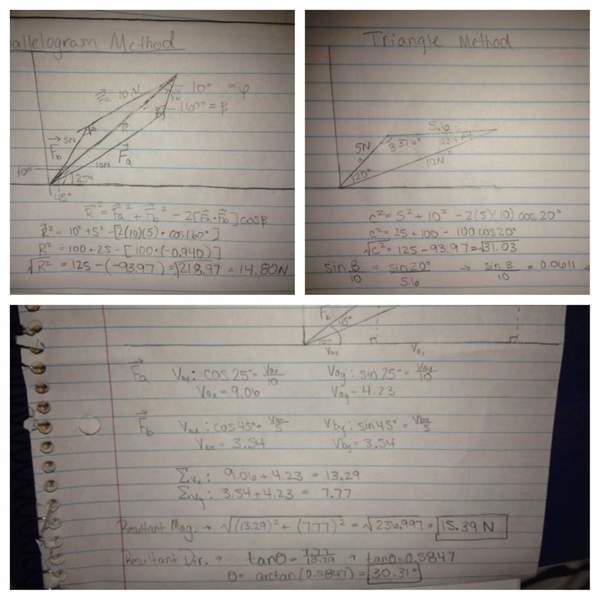 allelogram Method
10N
10°
= φ
160° = β
5N
F⃗b
F⃗a
10N
25°
45°
R⃗² = F⃗a² + F⃗b² - 2[F⃗a·F⃗b] cosβ
R⃗² = 10² + 5² - [2(10)(5) · cos160°]
R² = 100 + 25 - [100 · (-0.940)]
√R² = 125 - (-93.97) = √218.97 = 14.80N
Triangle Method
5.6
5N
20°
c² = 5² + 10² - 2(5)(10) cos20°
c² = 25 + 100 - 100cos20°
√c² = 125 - 93.97 = √31.03
sin B / 10 = sin20° / 5.6 → sin B / 10 = 0.0611 →
F⃗a Vax: cos25° = Vax/10 Vay: sin25° = Vay/10
Vax = 9.06 Vay = 4.23
F⃗b Vbx: cos45° = Vbx/5 Vby: sin45° = Vby/5
Vbx = 3.54 Vby = 3.54
Σvx: 9.06 + 4.23 = 13.29
Σvy: 3.54 + 4.23 = 7.77
Resultant Mag. → √(13.29)² + (7.77)² = √236.997 = 15.39 N
Resultant Dir. → tanθ = 7.77/13.29 → tanθ = 0.5847
θ = arctan(0.5847) = 30.31°